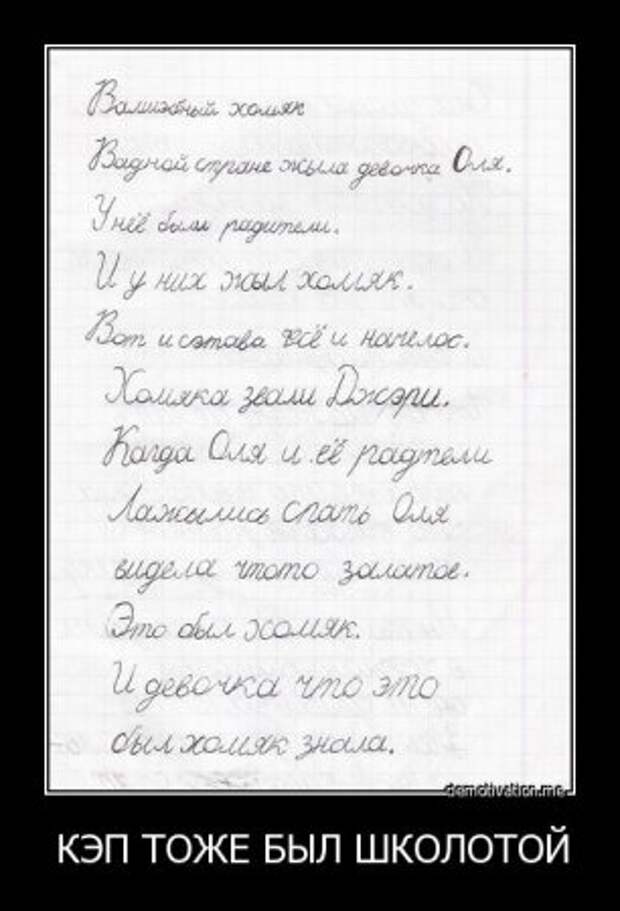 Валижбный хомяк
Вадной стране жыла девочка Оля.
У неё были радители.
И у них жыл хомяк.
Вот и сэтава всё и начелос.
Хомяка звали Джэри.
Кагда Оля и её радтели
Лажылись спать Оля
видела чтото залатое.
Это был Хомяк.
И девочка что это
был хомяк знала.
demotivation.me
КЭП ТОЖЕ БЫЛ ШКОЛОТОЙ